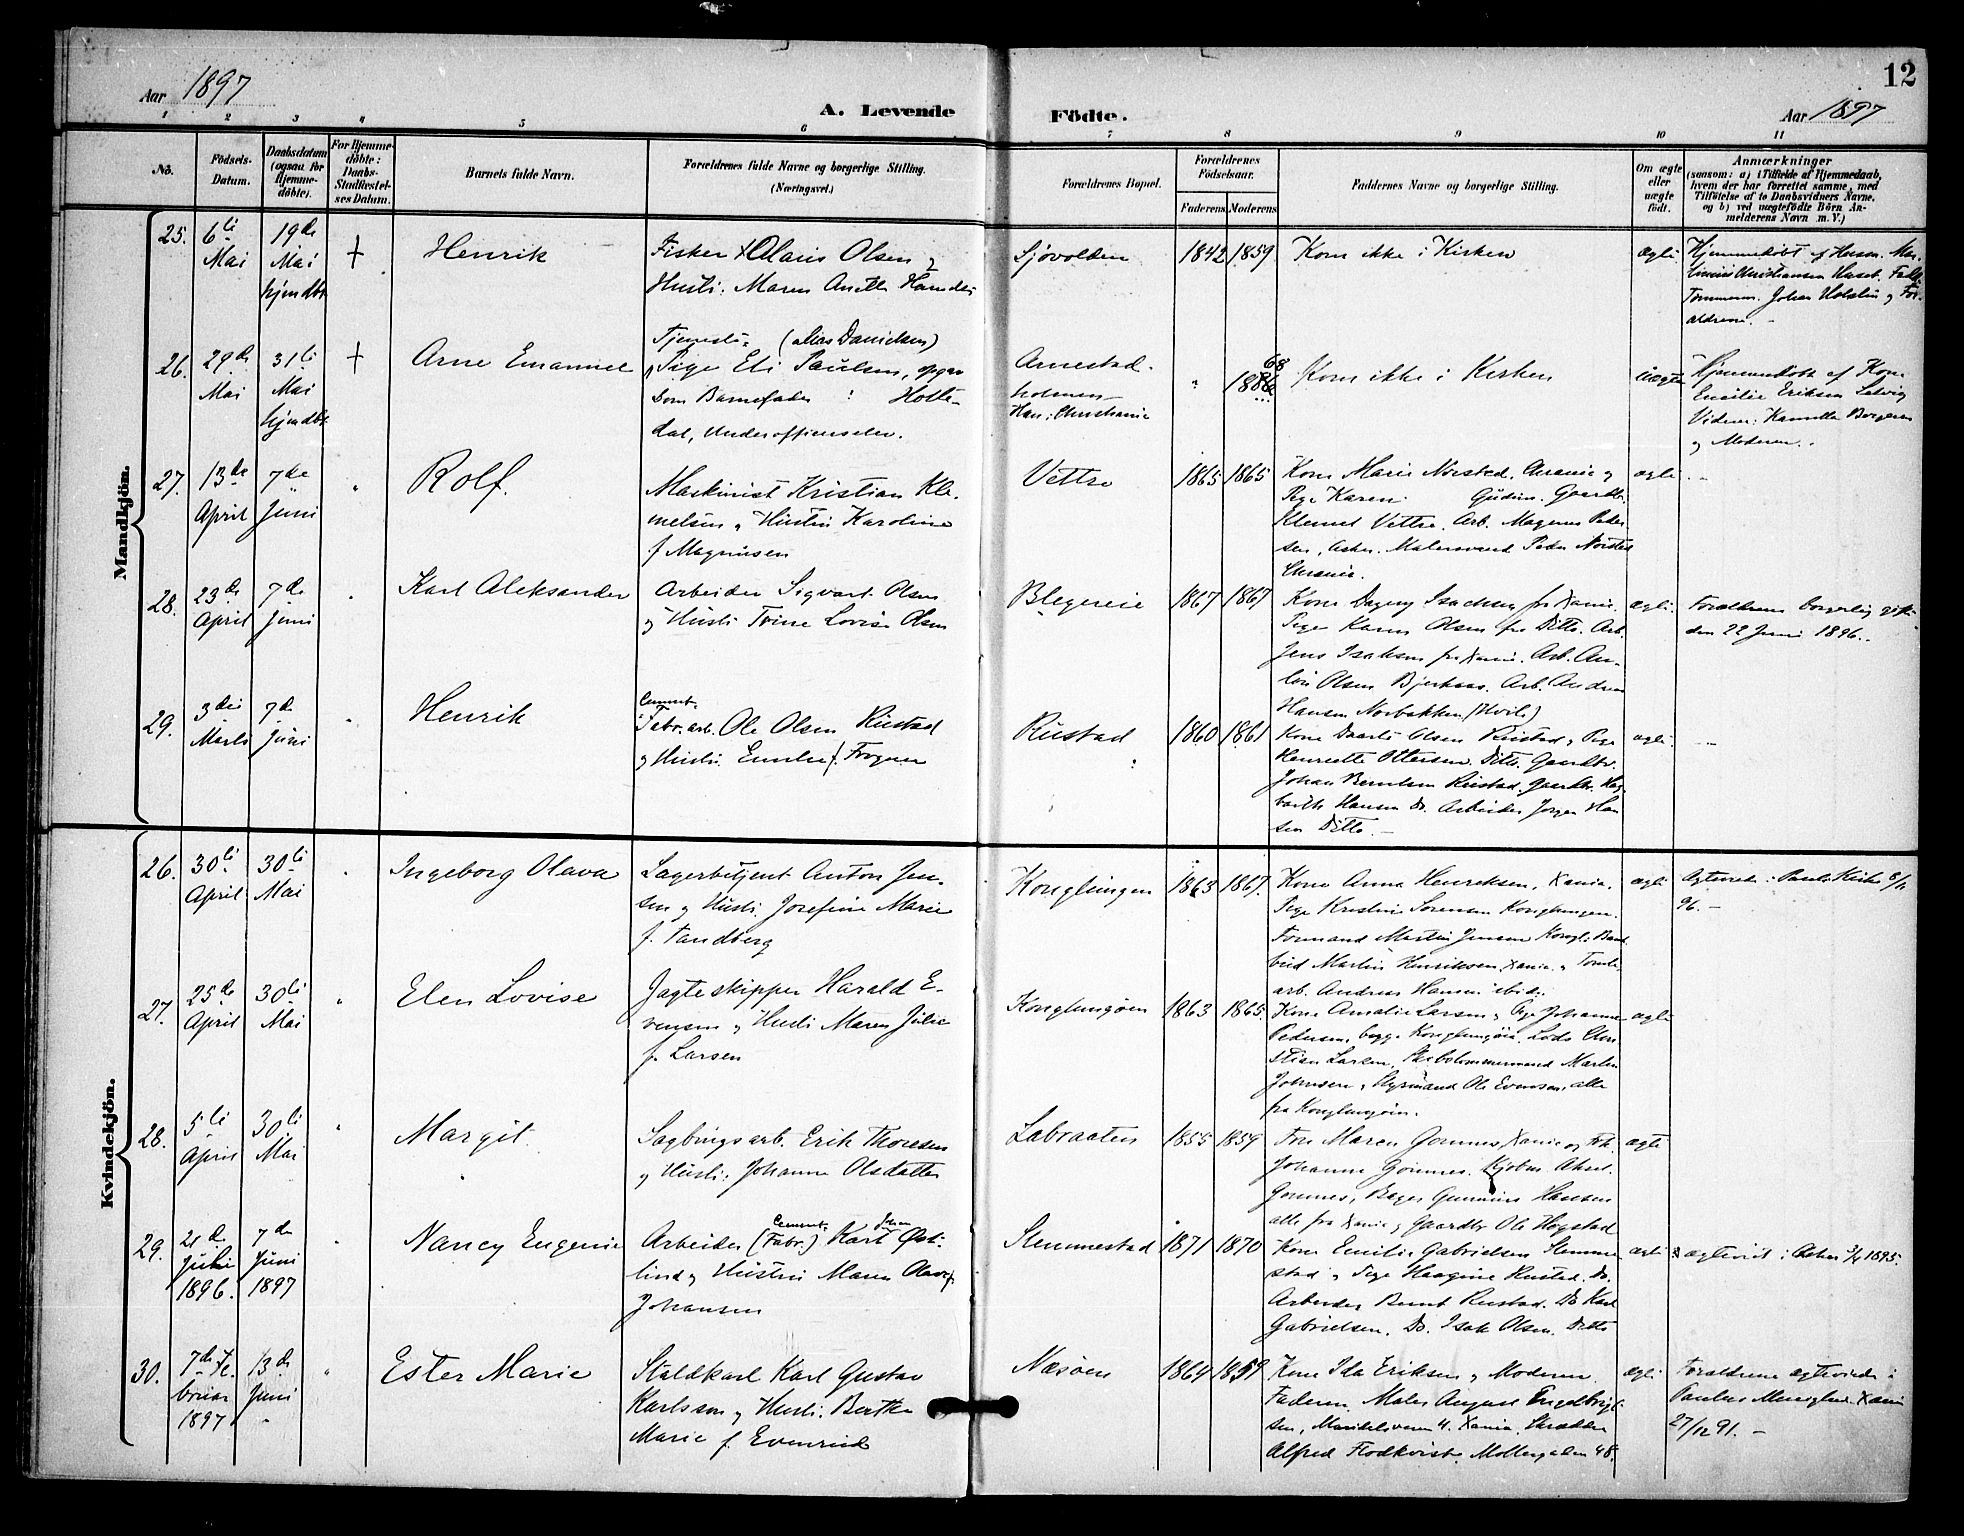 12
Aar 1897
A. Levende
Födte.
Aar 1897
1 2 3 4 5 6 7 8 9 10 11
No.
Födsels-
Datum.
Daabsdatum
(ogsaa for
Hjemme-
döbte).
For Hjemme-
döbte:
Daabs-
Stadfæstel-
ses Datum.
Barnets fulde Navn.
Forældrenes fulde Navne og borgerlige Stilling.
(Næringsvei.)
Forældrenes Bopæl.
Forældrenes
Födselsaar.
Faderens. Moderens.
Faddernes Navne og borgerlige Stilling.
Om ægte
eller
uægte
födt.
Anmærkninger
(saasom: a) i Tilfælde af Hjemmedaab,
hvem der har forrettet samme, med
Tilföielse af to Daabsvidners Navne,
og b) ved uægtefödte Börn An-
melderens Navn m. V.)
Mandkjön.
25.
6te
Mai
19de
Mai
hjmdbt
+
Henrik
Fisker Olaus Olsen og
Hustr. Maren Anette
Sjøvolden
1842 1859
Kom ikke i Kirken
ægte
Hjemmedøbt af
Christiansen
Tømmerm. Johan Holstin og For-
ældrene.
26.
29de
Mai
31te
Mai
hjmdbt
+
Arne Emanuel
Tjeneste- (alias Danielsen)
Pige Eli Paulsen, opgav
som Barnefader : Holte-
dal, Underofficerselev.
Arnestad-
holmen
Han: Christiania
68
Kom ikke i Kirken
uægte
Hjemmedøbt af Kone
Emilie Eriksen
Vidner: Kamilla Borgersen
og Moderen.
27.
13de
April
7de
Juni
Rolf.
Maskinist Kristian Kle-
metsen og Hustru Karoline
f. Magnusen
Vettre
1865 1865
Kone Marie Norstad, og
Pige Karen Gudim. Gaardbr.
Klemet Vettre. Arb. Magnus Peder-
sen, Asker. Malersvend Peder Norstad
ægte
28.
23de
April
7de
Juni
Karl Aleksander
Arbeider Sigvart Olsen
og Hustr. Trine Lovise Olsen
Blegereie
1867 1867
Kone Dagny Isachsen fra Xania.
Pige Karen Olsen fra Ditto. Arb.
Jens Isaksen fra Xania. Arb. An-
ton Olsen Bjerkaas. Arb. Andreas
Hansen Norbakken (Hvils)
ægte
Forældrene borgerlig gift
den 22 Juni 1896.
29.
3die
Marts
7de
Juni
Henrik
Cement-
Fabr. arb. Ole Olsen Rustad
og Hustr. Emilie f. Frogner
Rustad
1860 1861
Kone Olsen Rustad, Pige
Henriette Ottersen Ditto. Gaardbr.
Johan Berntsen Rustad. Gaardbr. Hag-
barth Hansen Do. Arbeider Jørgen Han-
sen Ditto.
ægte
Kvindekjön.
26.
30te
April
30te
Mai
Ingeborg Olava
Lagerbetjent Anton Jen-
sen og Hustr. Josefine Marie
f. Tandberg
Konglungen
1863 1867
Kone Anna Henriksen, Xania.
Pige Kristine Sørensen Konglungen.
Formand Martin Jensen Kongl.
Martin Henriksen, Xania.
arb. Andreas Hansen ibid.
ægte
Ægteviede i Pauls Kirke
96.
27.
25de
April
30te
Mai
Elen Lovise
Jagteskipper Harald E-
vensen og Hustr. Maren Julie
f. Larsen
Konglungøen
1863 1865
Kone Amalie Larsen og Pige Johanne
Pedersen, begge Konglungøen. Lods Chri-
stian Larsen, Skibstømmermand Martin
Johnsen og Styrmand Ole Evensen, alle
fra Konglungøen.
ægte
28.
5te
April
30te
Mai
Margit.
Sagbrugsarb. Erik Thoresen
og Hustr. Johanne Olsdatter
Labraaten
1855 1859
Fru Maren Gomnes, Xania og Frk.
Johanne Gomnes. Kjøbm. Aksel
Gomnes, Bager Gunnerius Hansen
alle fra Xania og Gaardbr. Ole Høgstad
ægte
29.
21de
Juli
1896.
7de
Juni
1897
Nancy Eugenie
Arbeider (Cement-Fabr.) Karl Johan Øst-
lind og Hustru Maren Olave f.
Johansen
Slemmestad
1871 1870
Kone Emilie Gabrielsen Slemme-
stad og Pige Haagine Rustad. Do.
Arbeider Bernt Rustad. Do Karl
Gabrielsen. Do. Isak Olsen. Ditto
ægte
Ægteviet i Asker 1895.
30.
7de Fe-
bruar
1897
13de
Juni
Ester Marie
Staldkarl Karl Gustav
Karlsson og Hustr. Berthe
Marie f. Evenrud
Næsøen
1864 1859
Kone Ida Eriksen og Moderen.
Faderen, Maler August Engelbrigt-
sen, Maridalsveien 4. Xania. Skrædder
Alfred Flodkvist. Møllergaden 48.
ægte
Forældrene ægteviede i
Paulus Menighed. Xania
27/12 91.